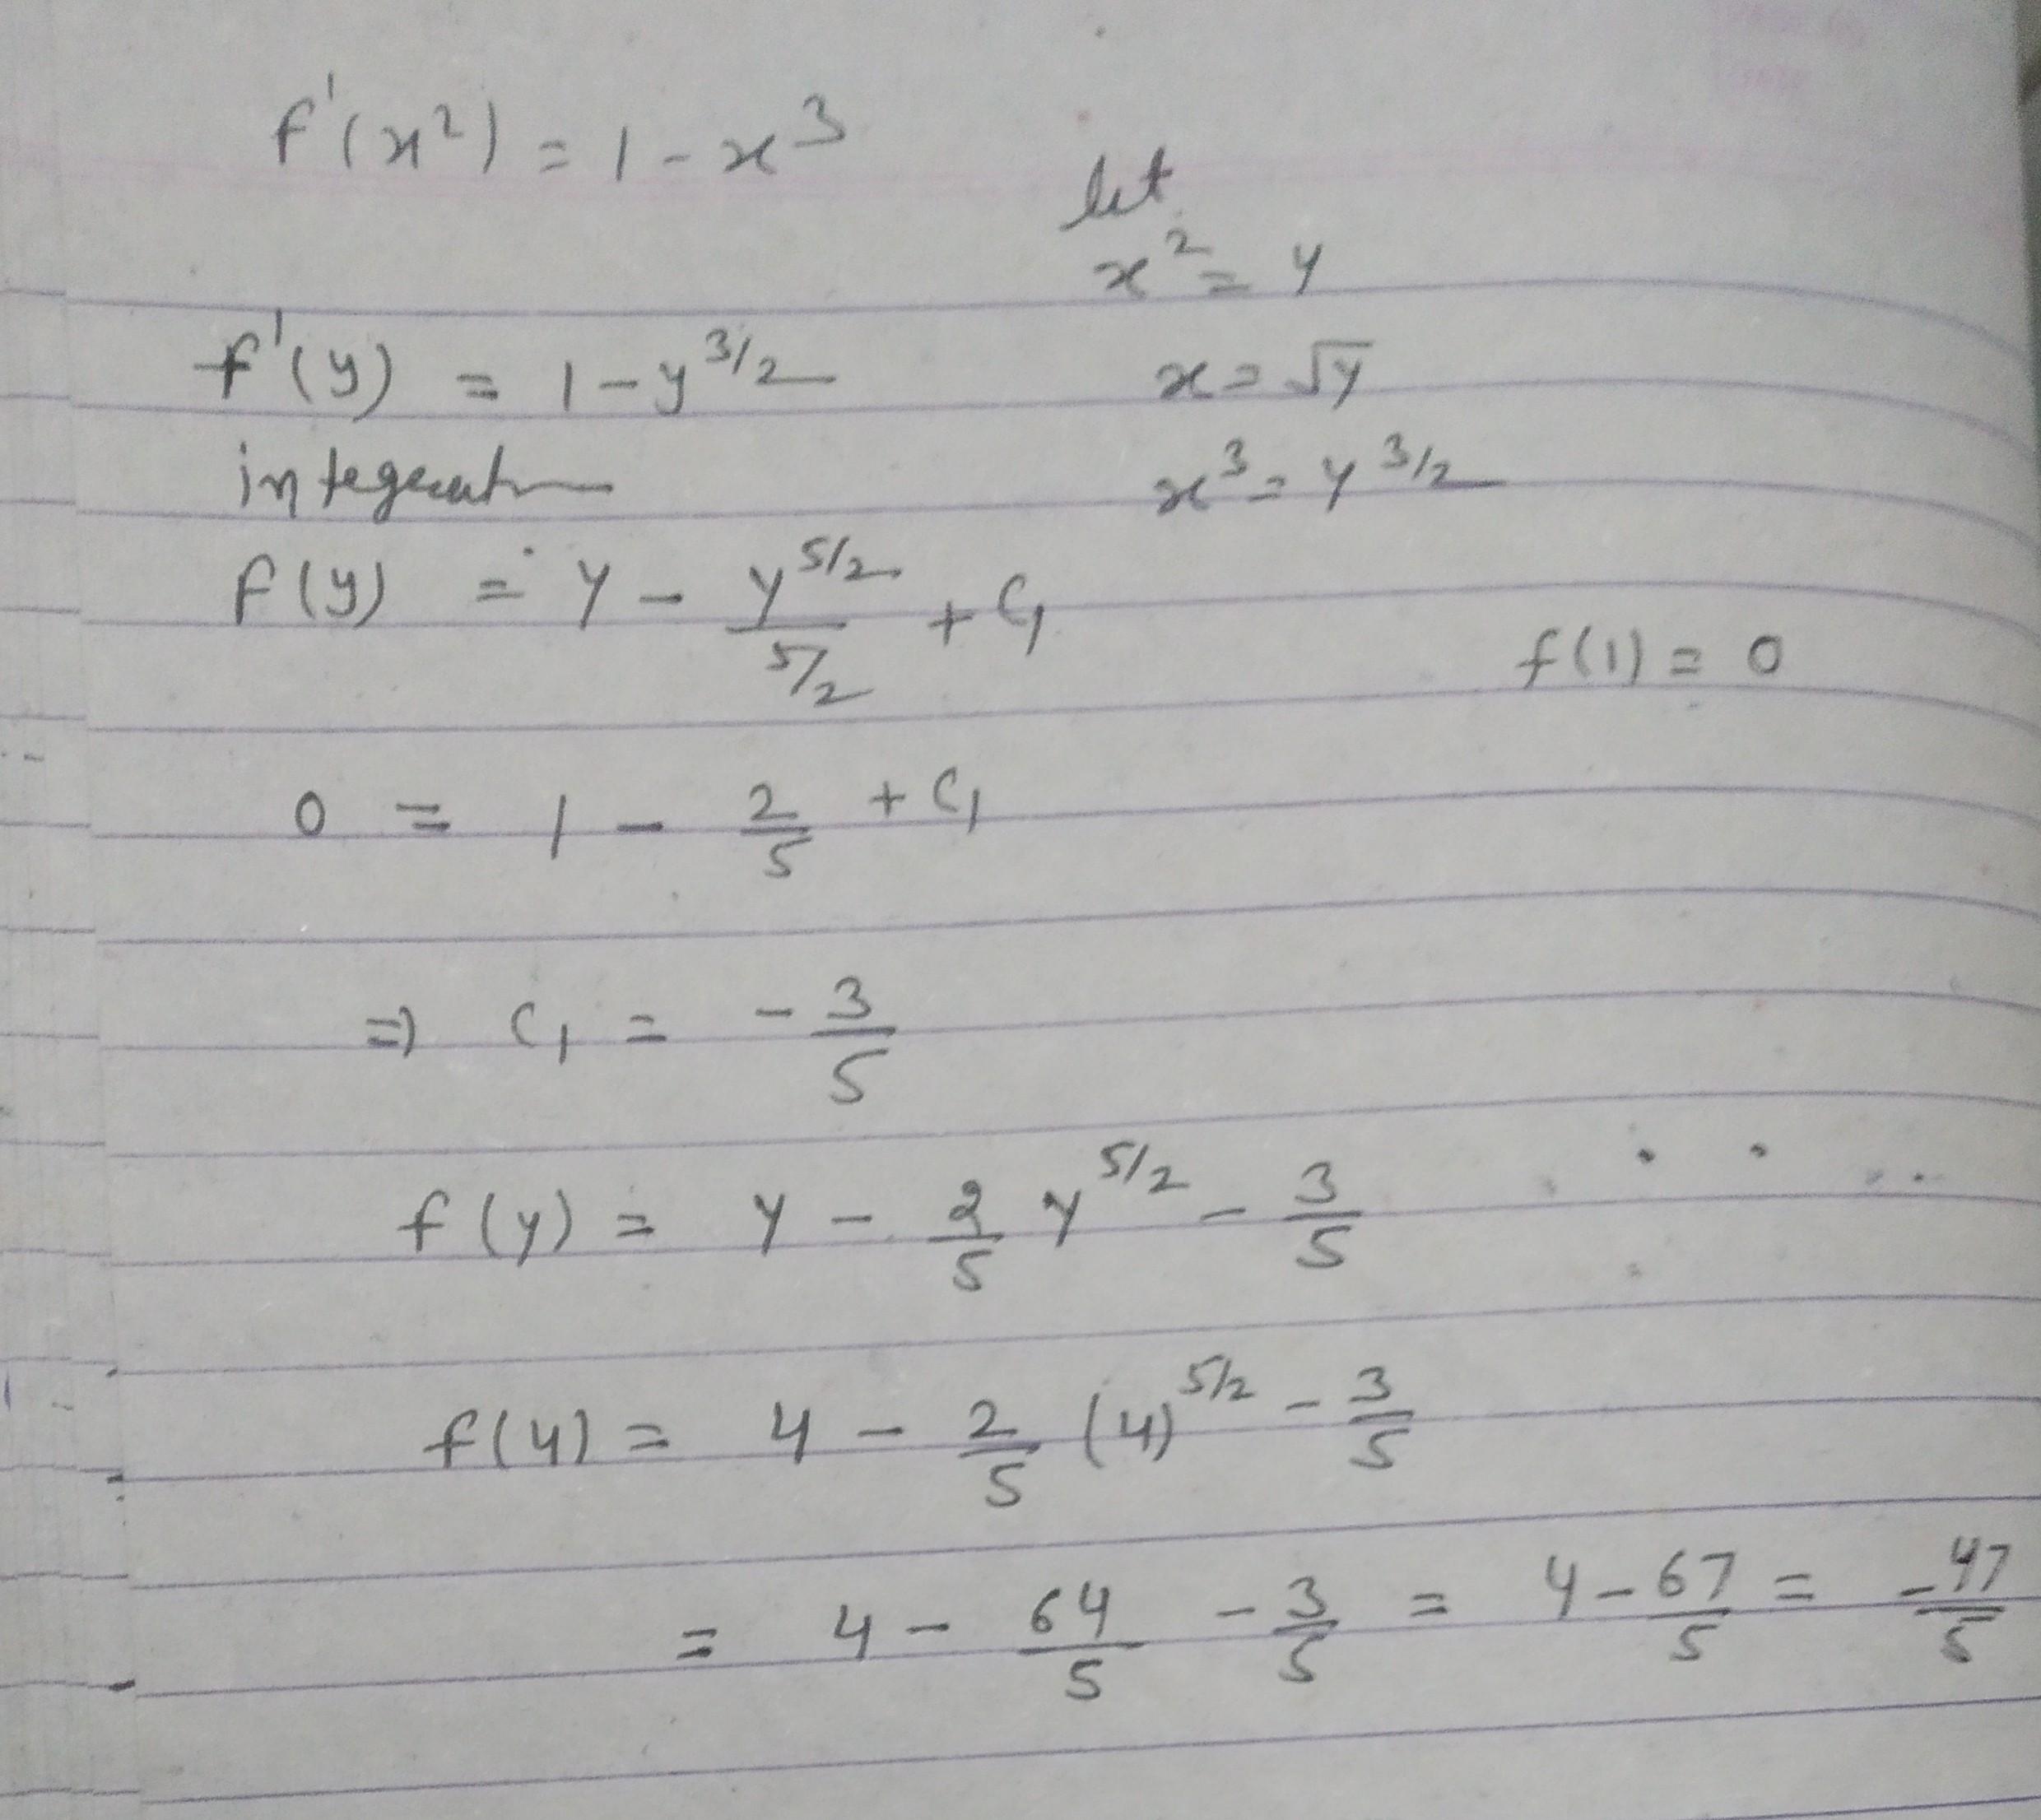 f'(x²) = 1 - x³
let
x² = y
f'(y) = 1 - y^3/2
x = √y
x³ = y^3/2
f(y) = y - y^5/2 / 5/2 + C₁
f(1) = 0
0 = 1 - 2/5 + C₁
⇒ C₁ = - 3/5
f(y) = y - 2/5 y^5/2 - 3/5
f(4) = 4 - 2/5 (4)^5/2 - 3/5
= 4 - 64/5 - 3/5 = 4 - 67/5 = -47/5